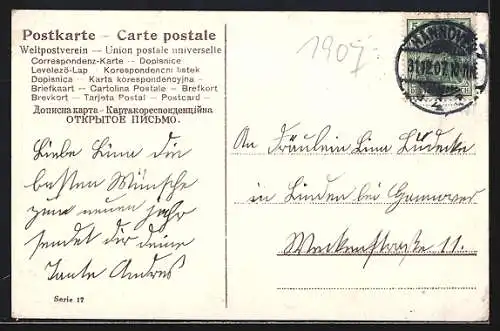 Postkarte – Carte postale
Weltpostverein — Union postale universelle
Correspondenz-Karte — Dopisnice
Levelező-Lap — Korespondencni listek
Dopisnica — Karta korespondencyjna —
Briefkaart — Cartolina Postale — Brefkort
Brevkort — Tarjeta Postal — Postcard —
Дописна карта - Картка кореспонденційна
ОТКРЫТОЕ ПИСЬМО.
1907
HANNOVER
31.12.07
Liebe Lina die
besten Wünsche
zum neuen Jahr
sendet dir deine
Tante
An Fräulein Lina Lüdecke
in Linden bei Hannover
11.
Serie 17